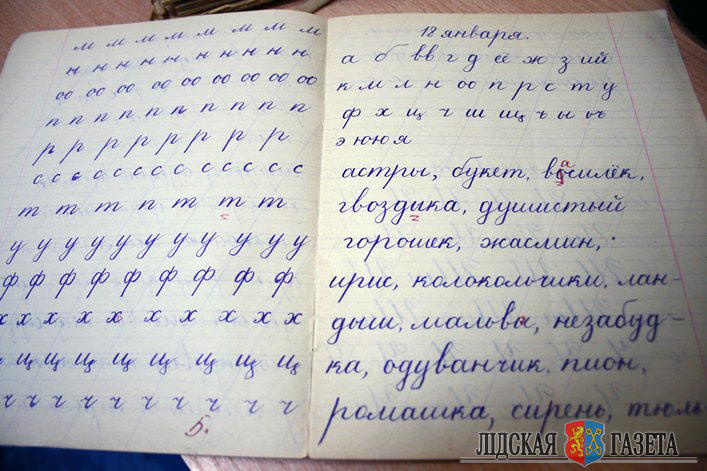 м м м м м м м м
н н н н н н н н
оо оо оо оо оо оо оо оо
п п п п п п п п п
р р р р р р р р
с с с с с с с с с с с
т т п п т т т
у у у у у у у у у у
ф ф ф ф ф ф ф ф
х х х х х х х х х
щ щ щ щ щ щ щ
ч ч ч ч ч ч ч ч ч
5.
18 января.
а б вв г д её ж з ий
к м л н оо п р с т у
ф х щ ч ш щ ъ ы ь
э юю я
астры, букет, восилёк,
а
гвоздика, душистый
горошек, жасмин,
ирис, колокольчики, лан-
дыш, мальвы, незабуд-
ка, одуванчик, пион,
ромашка, сирень, тюль
ЛІДСКАЯ ГАЗЕТА